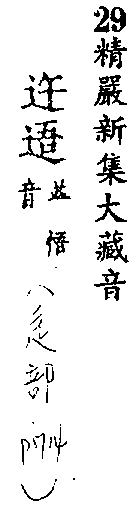 29精嚴新集大藏音
迕逜並音悟
八辵部